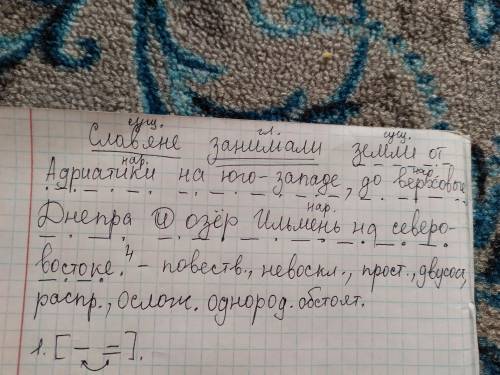 сущ. гл. сущ.
Славяне занимали земли от
нар.
Адриатики на юго-западе, до верховьев
нар.
Днепра и озёр Ильмень на северо-
востоке.⁴ - повеств., невоскл., прост., двусос.,
распр., ослож. однород. обстоят.
1. [— =].